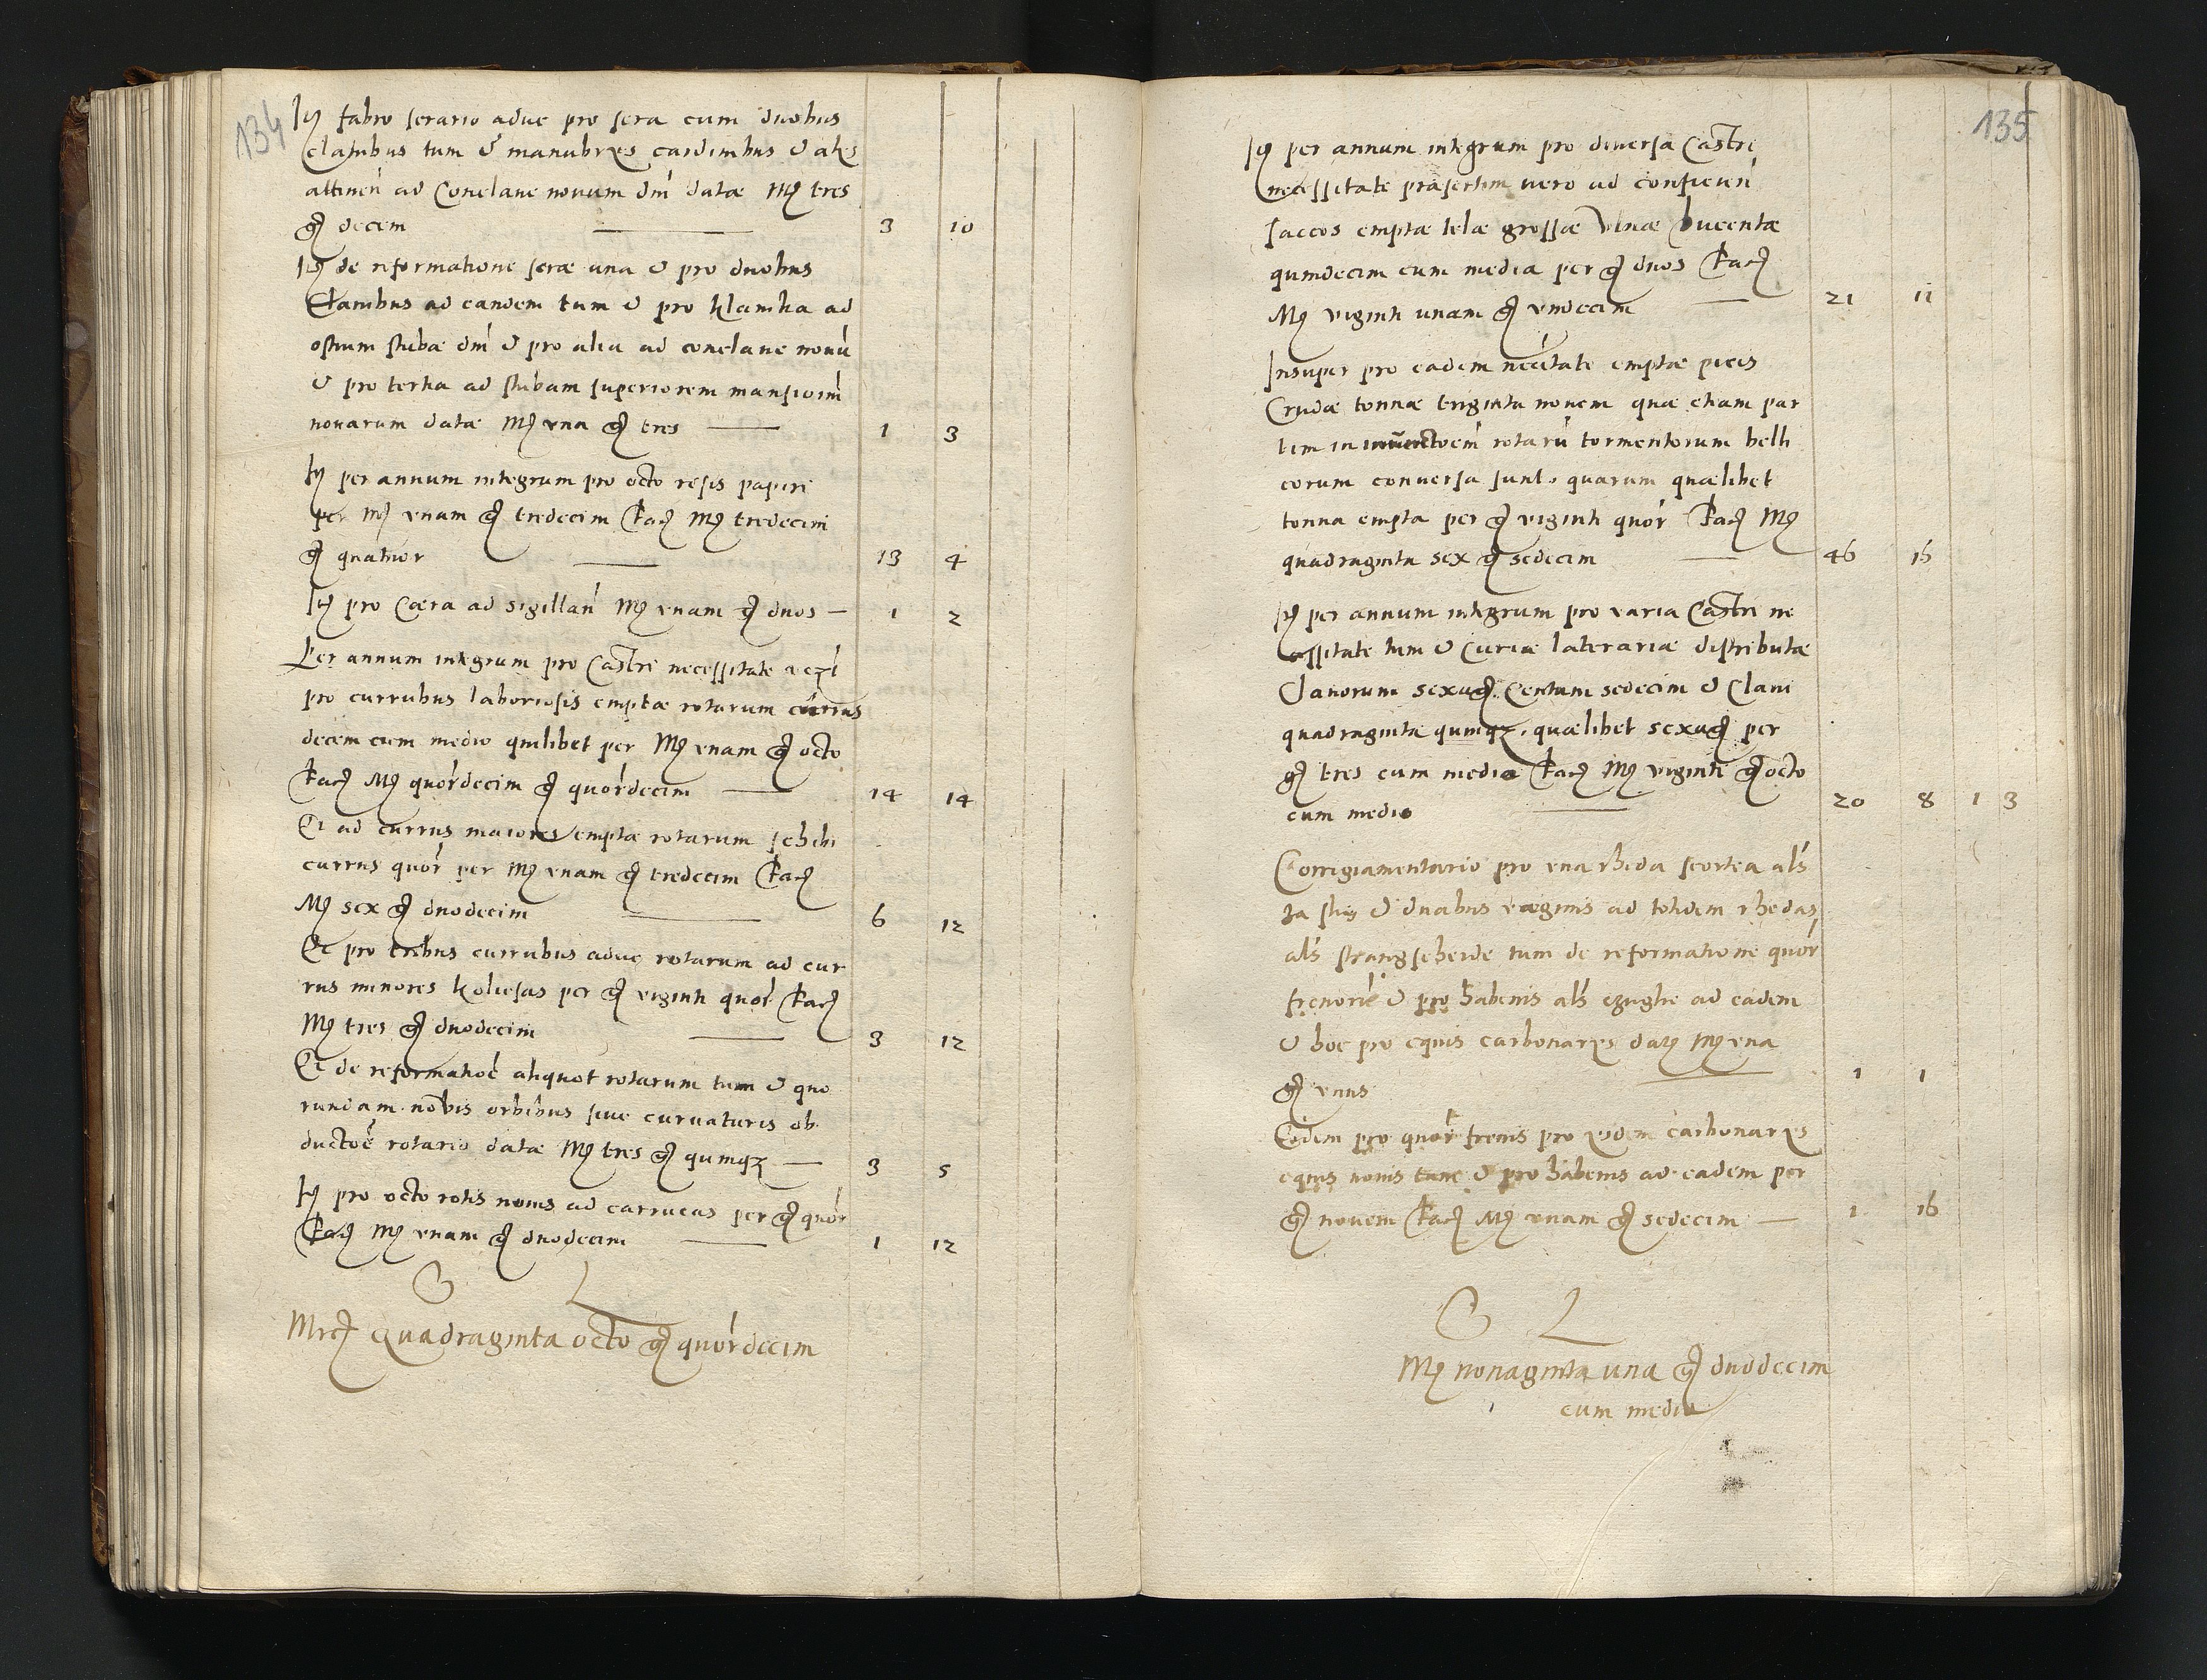 134
It fabro serario aduc pro sera cum duobus
clauibus tum & manubrijs cardinibus & alijs
attinen ad Conclaue nouum dni datae Mr tres
gr decem 3 10
It de reformatione serae una & pro duobus
Clauibus ad eandem tum & pro klamka ad
ostium stubae dni & pro alia ad conclaue nouu
& pro tertia ad stubam superiorem mansionu
nouarum datae Mr vna gr tres 1 3
It per annum integrum pro octo resis papiri
per Mr vnam gr tredecim Fac Mr tredecim
gr quatuor 13 4
It pro Caera ad sigillan Mr vnam gr duos 1 2
Per annum integrum pro Castri necessitate
pro currubus laboriosis emptae rotarum currus
decem cum medio quilibet per Mr vnam gr octo
Fac Mr quordecim gr quordecim 14 14
Et ad currus maiores emptae rotarum
currus quor per Mr vnam gr tredecim Fac
Mr sex gr duodecim 6 12
Et pro tribus currubus aduc rotarum ad cur
rus minores koliesas per gr viginti quor Fac
Mr tres gr duodecim 3 12
Et de reformatioe aliquot rotarum tum & quo
rundam nouis orbibus siue curuaturis ob
ductoe rotario datae Mr tres gr quinqz 3 5
It pro octo rotis nouis ad carrucas per gr quor
Fac Mr vnam gr duodecim 1 12
Mrc Quadraginta octo gr quordecim
135
It per annum integrum pro diuersa Castri
necessitate praesertim uero ad conficien
saccos emptae telae grossae Vlnae Ducentae
quindecim cum media per gr duos Fac
Mr viginti unam gr vndecim 21 11
Insuper pro eadem necitate emptae picis
Crudae tonnae triginta nouem quae etiam par
tim in inunctoem rotaru tormentorum belli
corum conuersa sunt. quarum quaelibet
tonna empta per gr viginti quor Fac Mr
quadraginta sex gr sedecim 46 16
It per annum integrum pro varia Castri ne
cessitate tum & Curiae laterariae distributae
Clauorum sexag Centum sedecim & Claui
quadraginta quinqz. quaelibet sexag per
gr tres cum medio Fac Mr viginti gr octo
cum medio 20 8 1 3
Corrigiamentario pro vna rheda scortea als
& duabus vaginis ad totidem rhedas
als strangscheide tum de reformatione quor
frenoru & pro habenis als czugle ad eadem
& hoc pro equis carbonarijs dat Mr vna
gr vnus 1 1
Eidem pro quor frenis pro eisdem carbonarijs
equis nouis tunc & pro habenis ad eadem per
gr nouem Fac Mr vnam gr sedecim 1 16
Mr nonaginta una gr duodecim
cum medio